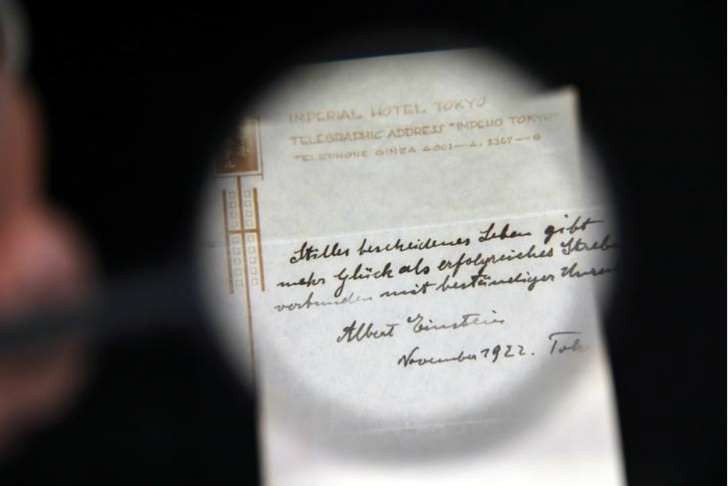 IMPERIAL HOTEL TOKYO
TELEGRAPHIC ADDRESS "IMPEHO TOKYO"
TELEPHONE GINZA
Stilles bescheidenes Leben gibt
mehr Glück als erfolgreiches Streben
verbunden mit beständiger
Albert Einstein
November 1922. Tok